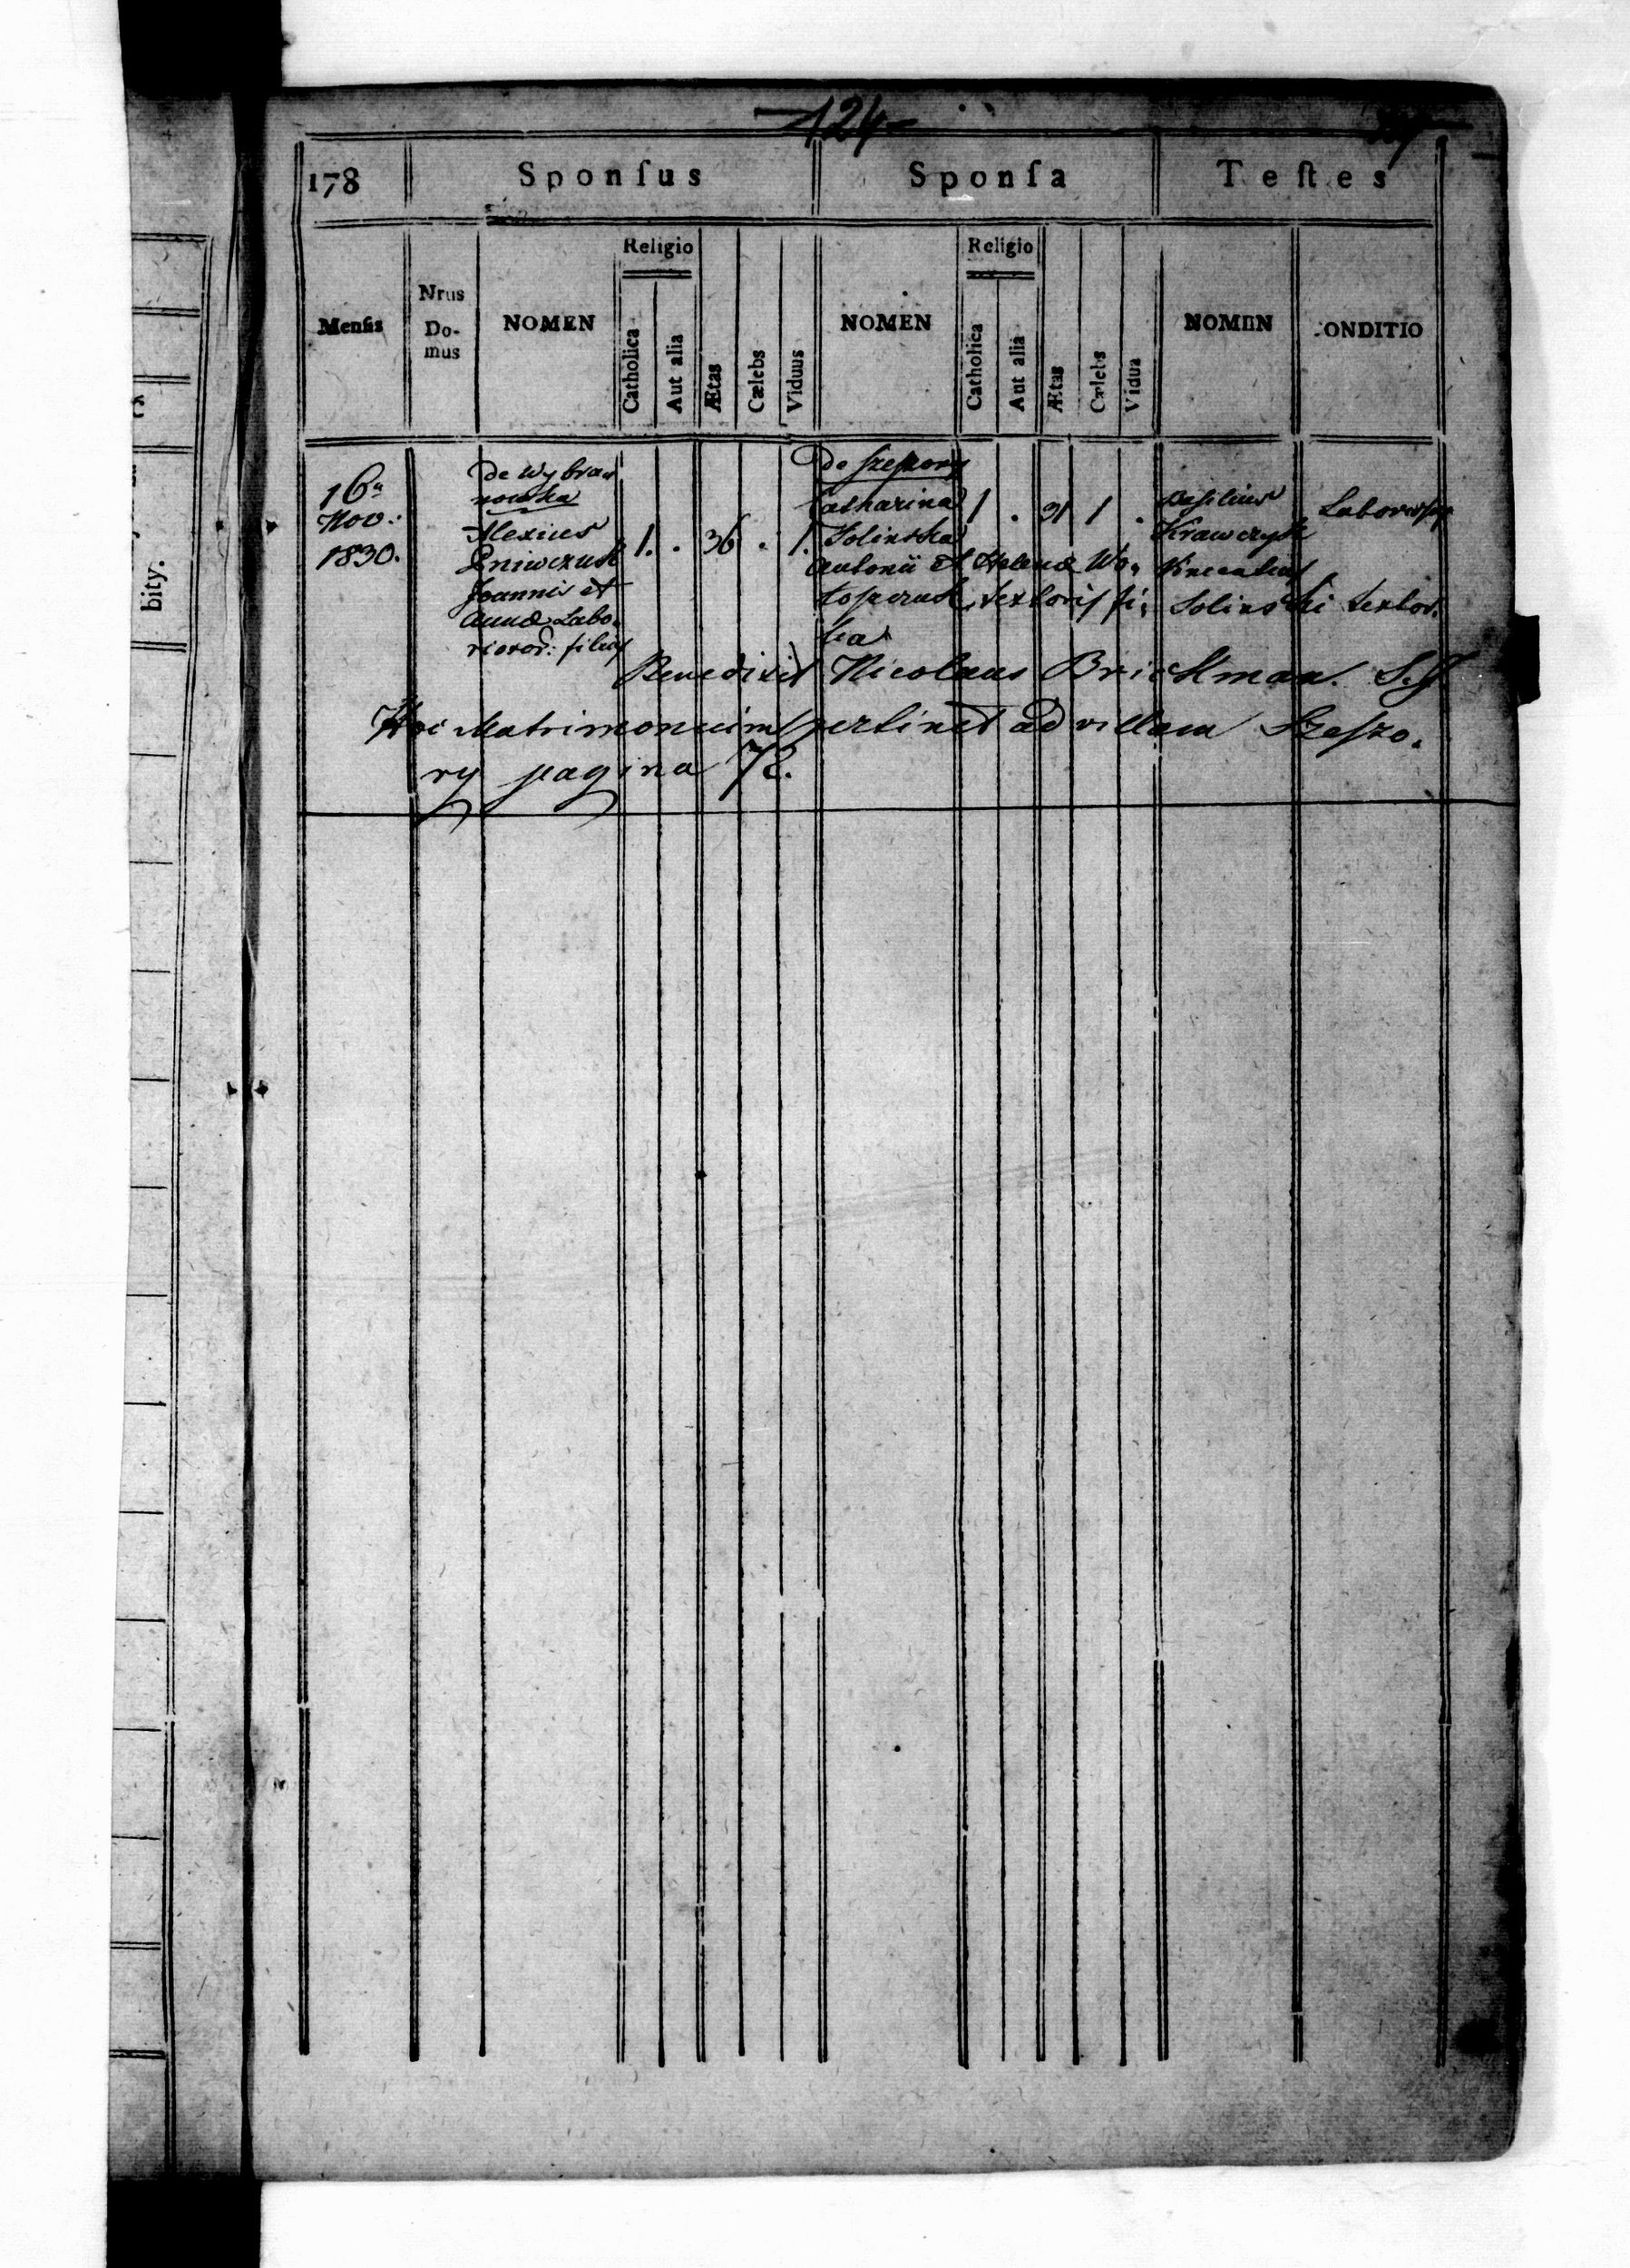 124
178 Sponſus Sponſa Teſtes
Menſis Nrus Do- mus NOMEN Religio Catholica Aut alia Ætas Cælebs Viduus NOMEN Religio Catholica Aut alia Ætas Cælebs Vidua NOMEN ONDITIO
bity.
16a
Nov.
1830.
de Wybra
nowka
Alexius
Pniwczuk
Joannis et
Annæ Labo
rioror: filius
1. . 36 . 1.
de Szeszory
Catharina
Solinska
Antonii et Helenæ Wo
toszczuk, textoris fi
lia
1 . 31 1 .
Basilius
Krawczyk
Vincentius
Solinski textor.
Benedixit Nicolaus Brickman. S.J
Hoc Matrimonium pertinet ad villam Szeszo.
ry pagina 72.